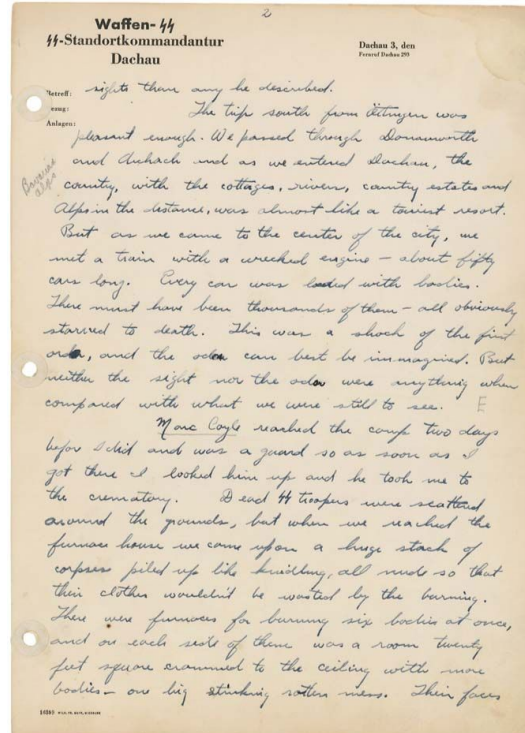 2
Waffen-SS
SS-Standortkommandantur
Dachau
Dachau 3, den
Fernruf Dachau 293
Betreff:
Bezug:
Anlagen:
sights than any he described.
The trip south from Ottingen was
pleasant enough. We passed through Donauworth
and Aichach and as we entered Dachau, the
country, with the cottages, rivers, country estates and
Alps in the distance, was almost like a tourist resort.
Bavarian
Alps
But as we came to the center of the city, we
met a train with a wrecked engine – about fifty
cars long. Every car was loaded with bodies.
There must have been thousands of them – all obviously
starved to death. This was a shock of the first
order, and the odor can best be immagined. But
neither the sight nor the odor were anything when
compared with what we were still to see.
Marc Coyle reached the camp two days
before I did and was a guard so as soon as I
got there I looked him up and he took me to
the crematory. Dead SS troopers were scattered
around the grounds, but when we reached the
furnace house we came upon a huge stack of
corpses piled up like kindling, all nude so that
their clothes wouldn't be wasted by the burning.
There were furnaces for burning six bodies at once,
and on each side of them was a room twenty
feet square crammed to the ceiling with more
bodies – one big stinking rotten mess. Their faces